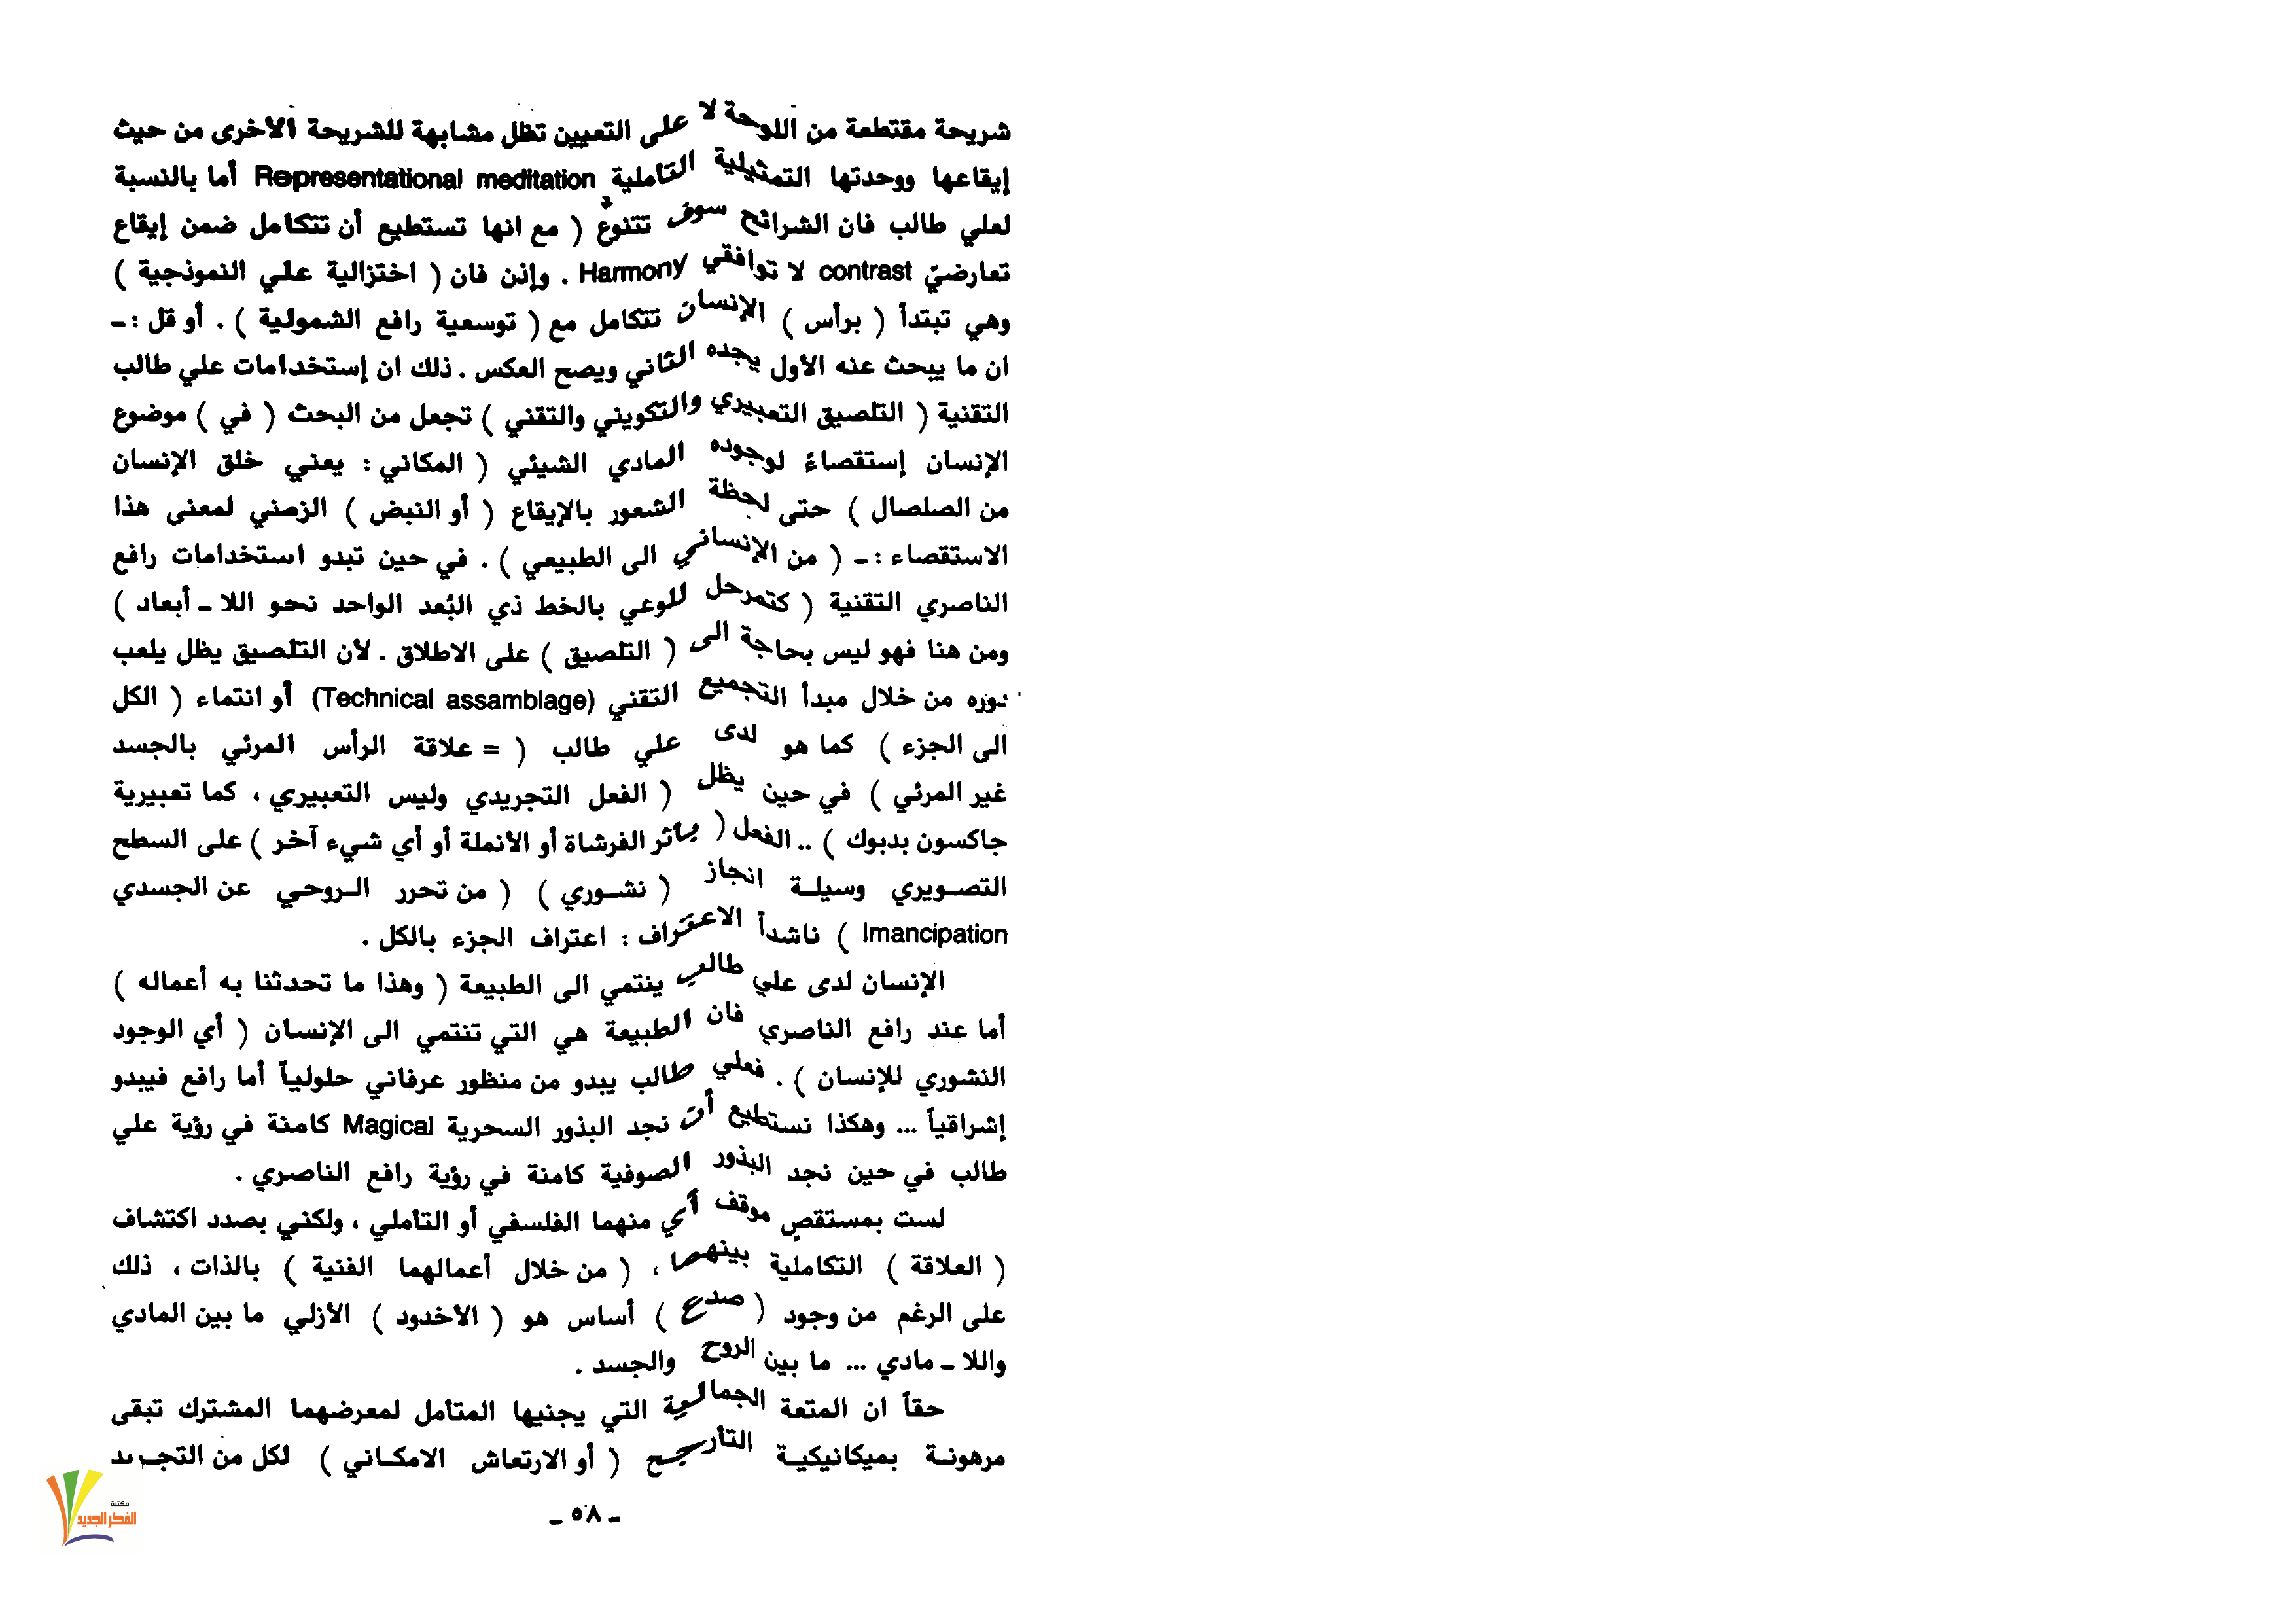 شريحة مقتطعة من اللوحة لا على التعيين تظل مشابهة للشريحة الأخرى من حيث
إيقاعها ووحدتها التمثيلية التأملية Representational meditation أما بالنسبة
لعلي طالب فان الشرائح سوف تتنوع ( مع انها تستطيع أن تتكامل ضمن إيقاع
تعارضيّ contrast لا توافقي Harmony . وإذن فان ( اختزالية علي النموذجية )
وهي تبتدأ ( برأس ) الإنسان تتكامل مع ( توسعية رافع الشمولية ) . أو قل : ـ
ان ما يبحث عنه الأول يجده الثاني ويصح العكس . ذلك ان إستخدامات علي طالب
التقنية ( التلصيق التعبيري والتكويني والتقني ) تجعل من البحث ( في ) موضوع
الإنسان إستقصاءً لوجوده المادي الشيئي ( المكاني : يعني خلق الإنسان
من الصلصال ) حتى لحظة الشعور بالإيقاع ( أو النبض ) الزمني لمعنى هذا
الاستقصاء : ـ ( من الإنساني الى الطبيعي ) . في حين تبدو استخدامات رافع
الناصري التقنية ( كتمرحل للوعي بالخط ذي البُعد الواحد نحو اللا ـ أبعاد )
ومن هنا فهو ليس بحاجة الى ( التلصيق ) على الاطلاق . لأن التلصيق يظل يلعب
دوره من خلال مبدأ التجميع التقني (Technical assamblage) أو انتماء ( الكل
الى الجزء ) كما هو لدى علي طالب ( = علاقة الرأس المرئي بالجسد
غير المرئي ) في حين يظل ( الفعل التجريدي وليس التعبيري ، كما تعبيرية
جاكسون بدبوك ) .. الفعل ( بأثر الفرشاة أو الأنملة أو أي شيء آخر ) على السطح
التصويري وسيلة انجاز ( نشوري ) ( من تحرر الروحي عن الجسدي
Imancipation ) ناشدأ الاعتراف : اعتراف الجزء بالكل .
الإنسان لدى علي طالب ينتمي الى الطبيعة ( وهذا ما تحدثنا به أعماله )
أما عند رافع الناصري فان الطبيعة هي التي تنتمي الى الإنسان ( أي الوجود
النشوري للإنسان ) . فعلي طالب يبدو من منظور عرفاني حلولياً أما رافع فيبدو
إشراقياً ... وهكذا نستطيع أن نجد البذور السحرية Magical كامنة في رؤية علي
طالب في حين نجد البذور الصوفية كامنة في رؤية رافع الناصري .
لست بمستقصٍ موقف أي منهما الفلسفي أو التأملي ، ولكني بصدد اكتشاف
( العلاقة ) التكاملية بينهما ، ( من خلال أعمالهما الفنية ) بالذات ، ذلك
على الرغم من وجود ( صدع ) أساس هو ( الأخدود ) الأزلي ما بين المادي
واللا ـ مادي ... ما بين الروح والجسد .
حقاً ان المتعة الجمالية التي يجنيها المتأمل لمعرضهما المشترك تبقى
مرهونة بميكانيكية التأرجح ( أو الارتعاش الامكاني ) لكل من التجريد
ـ ٥٨ ـ
مكتبة
الفكر الجديد